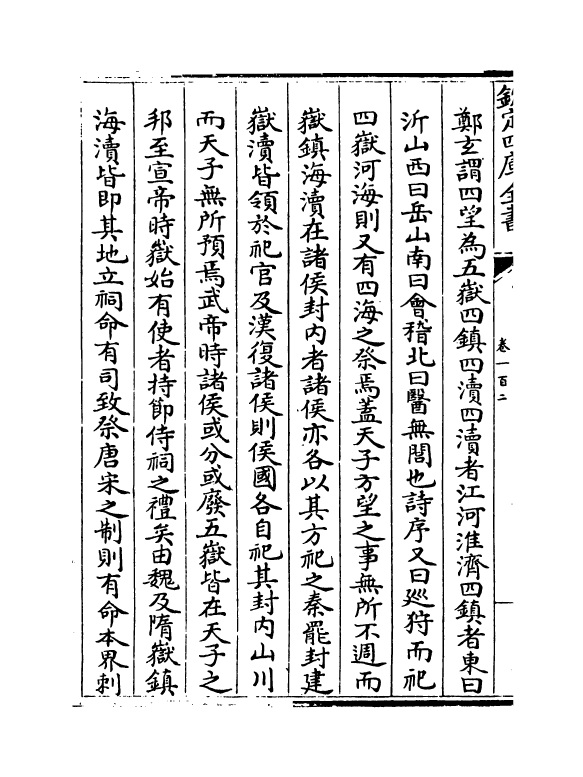 欽定四庫全書
卷一百二
鄭玄謂四望為五嶽四鎮四瀆四瀆者江河淮濟四鎮者東曰
沂山西曰岳山南曰會稽北曰醫無閭也詩序又曰廵狩而祀
四嶽河海則又有四海之祭焉蓋天子方望之事無所不週而
嶽鎮海瀆在諸侯封内者諸侯亦各以其方祀之秦罷封建
嶽瀆皆領於祀官及漢復諸侯則侯國各自祀其封内山川
而天子無所預焉武帝時諸侯或分或廢五嶽皆在天子之
邦至宣帝時嶽始有使者持節侍祠之禮矣由魏及隋嶽鎮
海瀆皆即其地立祠命有司致祭唐宋之制則有命本界刺